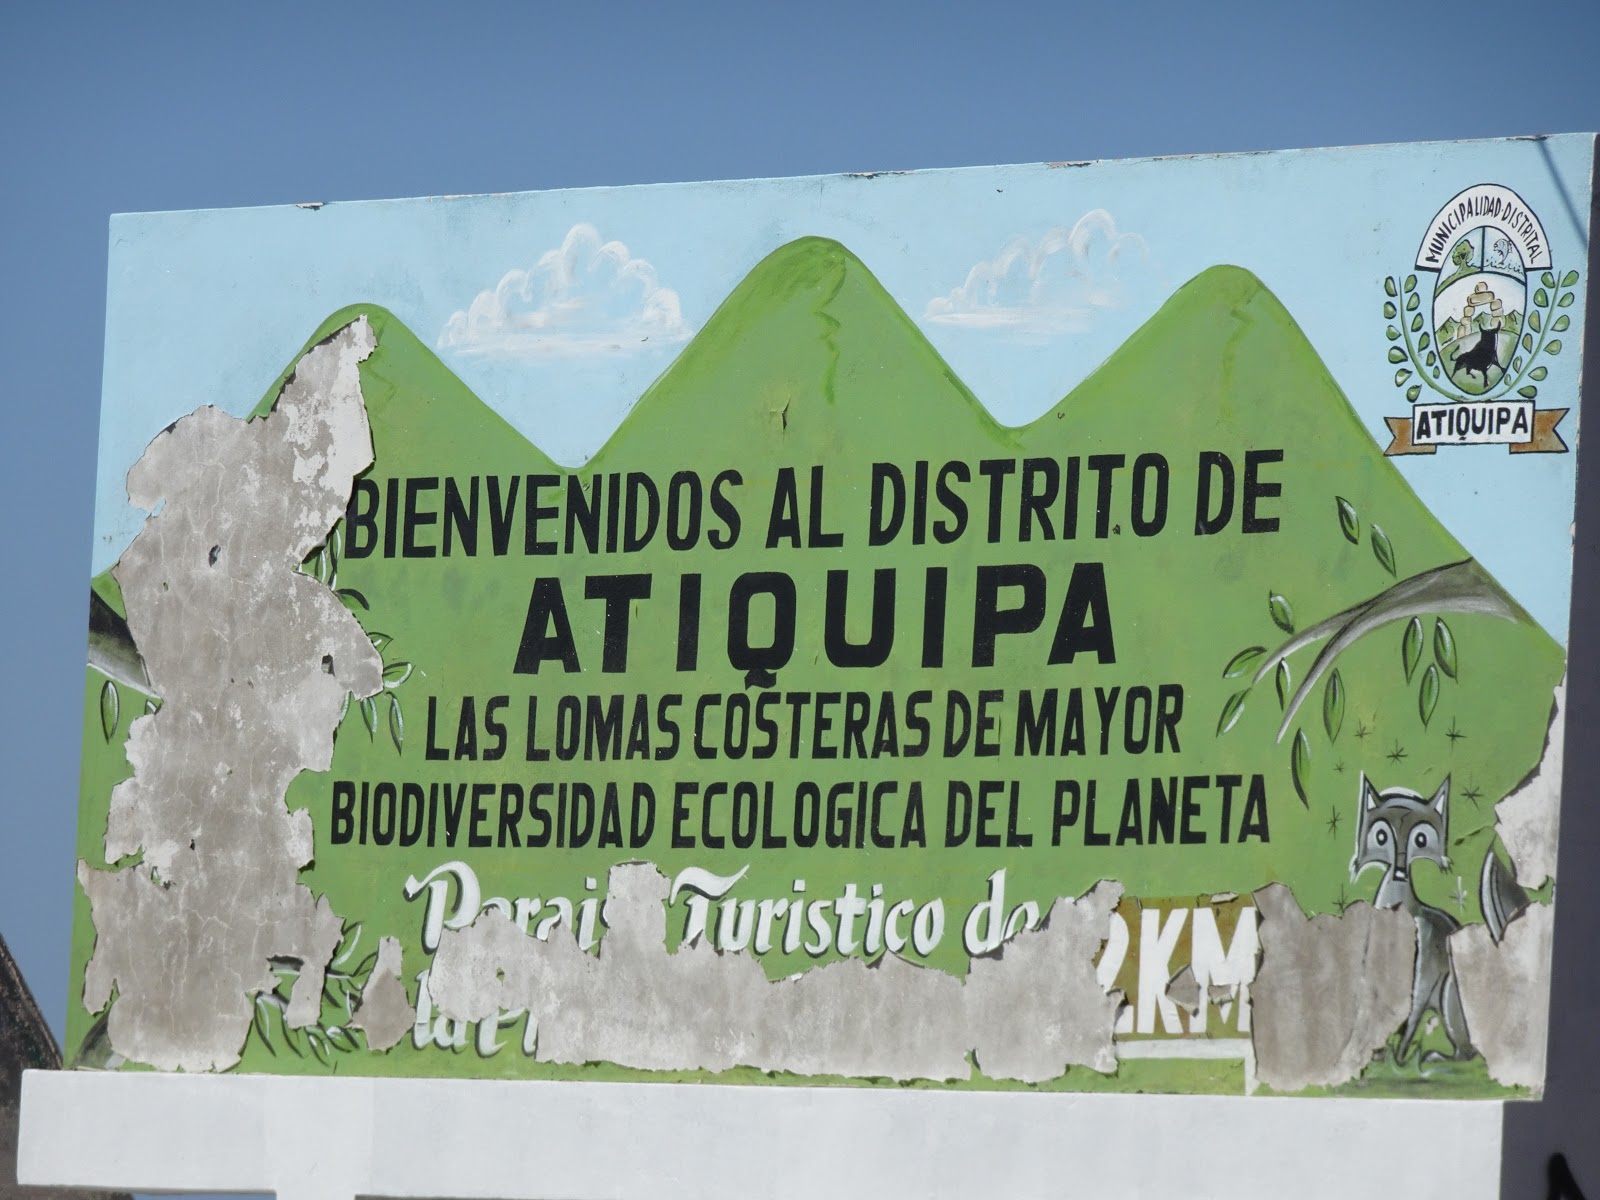 MUNICIPALIDAD DISTRITAL
ATIQUIPA
BIENVENIDOS AL DISTRITO DE
ATIQUIPA
LAS LOMAS COSTERAS DE MAYOR
BIODIVERSIDAD ECOLOGICA DEL PLANETA
Turistico de
2KM